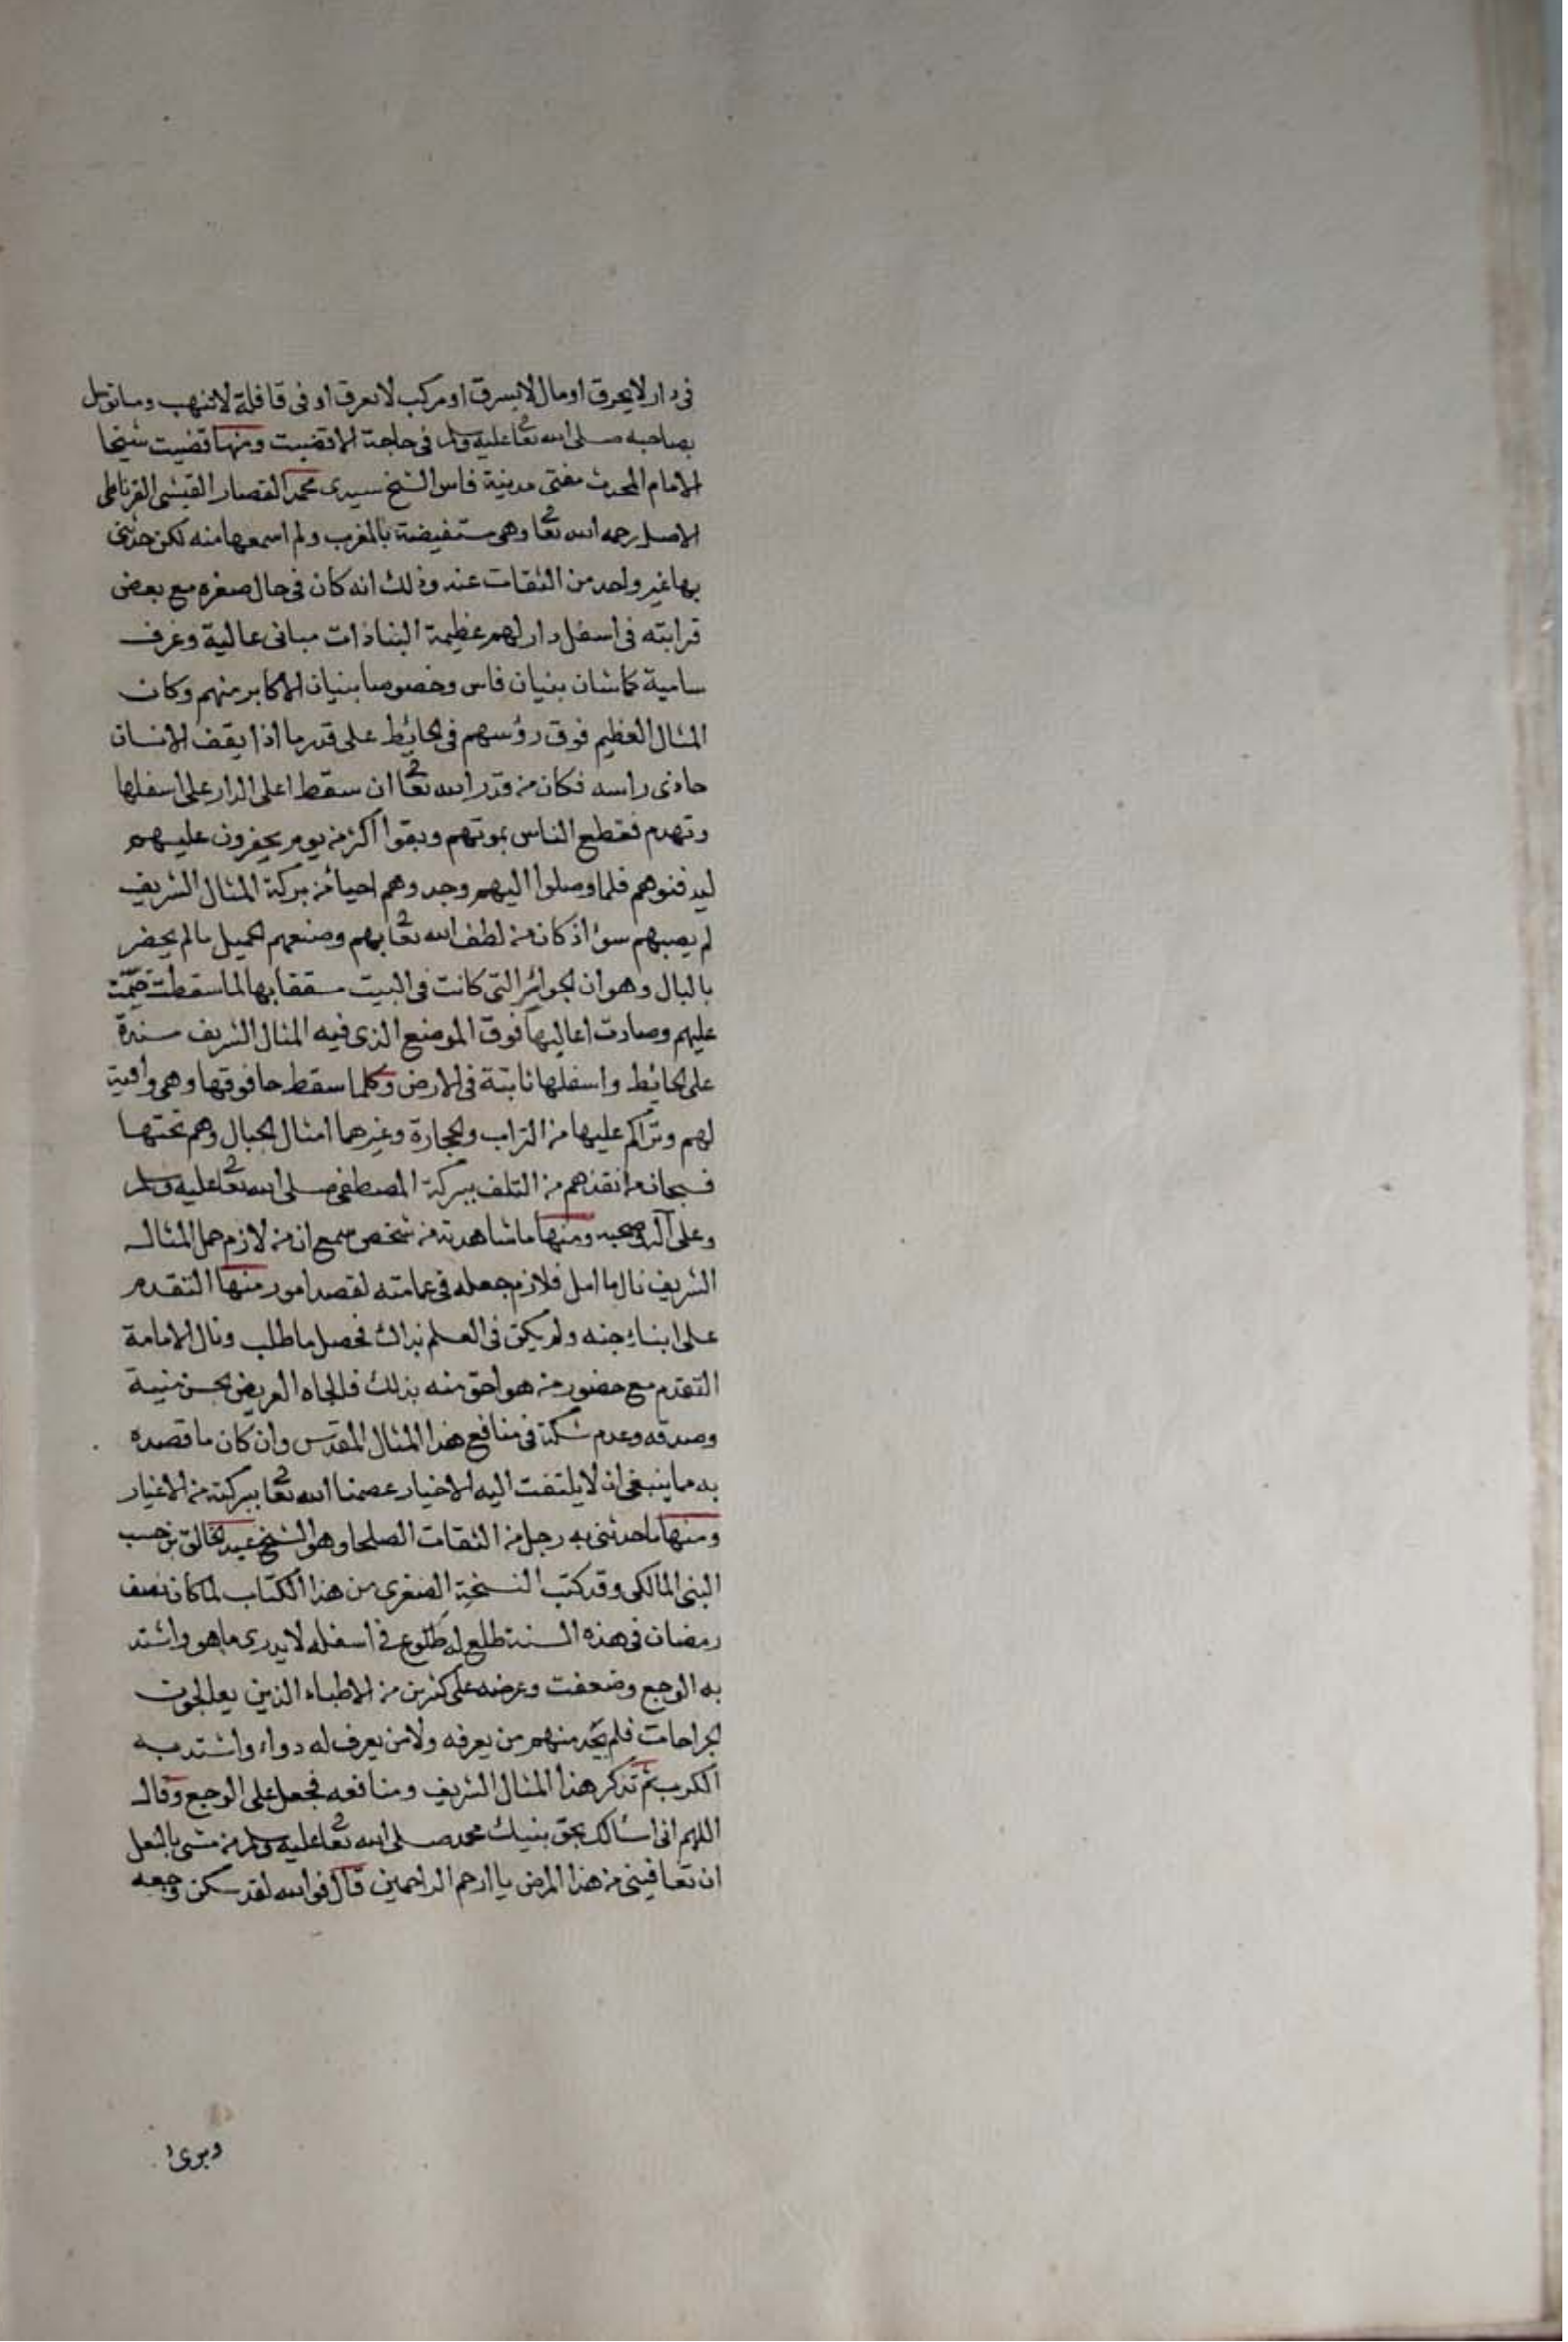 فى دار لا يحرق او مال لا يسرق او مركب لا يغرق او فى قافلة لا تنهب وما توسل
بصاحبه صلى الله تعا عليه وسلم فى حاجة الا قضيت ومنها قضيت شيخا
الامام المحدث مفتى مدينة فاس الشيخ سيدى محمد القصار القيسى الغرناطى
الاصل رحمه الله تعا وهى مستفيضة بالمغرب ولم اسمعها منه لكن حدثنى
بها غير واحد من الثقات عنه وذلك انه كان فى حال صغره مع بعض
قرابته فى اسفل دار لهم عظيمة البنا ذات مبانى عالية وغرف
سامية كما شان بنيان فاس وخصوصا بنيان الاكابر منهم وكان
المثال العظيم فوق رؤسهم فى الحائط على قدر ما اذا يقف الانسان
حاذى راسه فكان من قدر الله تعا ان سقط اعلى الدار على اسفلها
وتهدم فقطع الناس بموتهم وبقوا اكثر من يوم يحفرون عليهم
ليدفنوهم فلما وصلوا اليهم وجدوهم احيا من بركة المثال الشريف
لم يصبهم سوٴ اذ كان من لطف الله تعا بهم وصنعهم الجميل مالم يحضر
بالبال وهو ان الجوائز التى كانت فى البيت سقفا بها لما سقطت خيمت
عليهم وصارت اعاليها فوق الموضع الذى فيه المثال الشريف سندة
على الحائط واسفلها ثابتة فى الارض وكلما سقط جا فوقها وهى واقية
لهم وتراكم عليها من التراب والحجارة وغيرهما امثال الجبال وهم تحتها
فسبحان من انقذهم من التلف ببركة المصطفى صلى الله تعا عليه وسلم
وعلى آله وصحبه ومنها ما شاهدته من شخص سمع ان من لازم حمل المثال
الشريف نال ما امل فلازم جعله فى عمامته لقصد امور منها التقدم
على ابناء جنسه ولم يكن فى العلم بذاك فحصل ما طلب ونال الامامة
التقدم مع حضور من هو احق منه بذلك فالجاه العريض بحسن نيية
وصدقه وعدم شكه فى منافع هذا المثال المقدس وان كان ما قصده
به مما ينبغى ان لا يلتفت اليه الاخيار عصمنا الله تعا ببركته من الاغيار
ومنها ما حدثنى به رجل من الثقات الصلحا وهو الشيخ عبد الخالق بن حسب
البنى المالكى وقد كتب النسخة الصغرى من هذا الكتاب لما كان نصف
رمضان فى هذه السنة طلع له طلوع فى اسفله لا يدرى ما هو واشتد
به الوجع وضعفت وعرضه على كثيرين من الاطباء الذين يعالجون
الجراحات فلم يجد منهم من يعرفه ولا من يعرف له دواء واشتد به
الكرب ثم تذكر هذا المثال الشريف ومنافعه فجعل على الوجع وقال
اللهم انى اسالك بحق بنيك محمد صلى الله تعا عليه وسلم من مشى بالنعل
ان تعافينى من هذا المرض يا ارحم الراحمين قال فوالله لقد سكن وجعه
وبرى